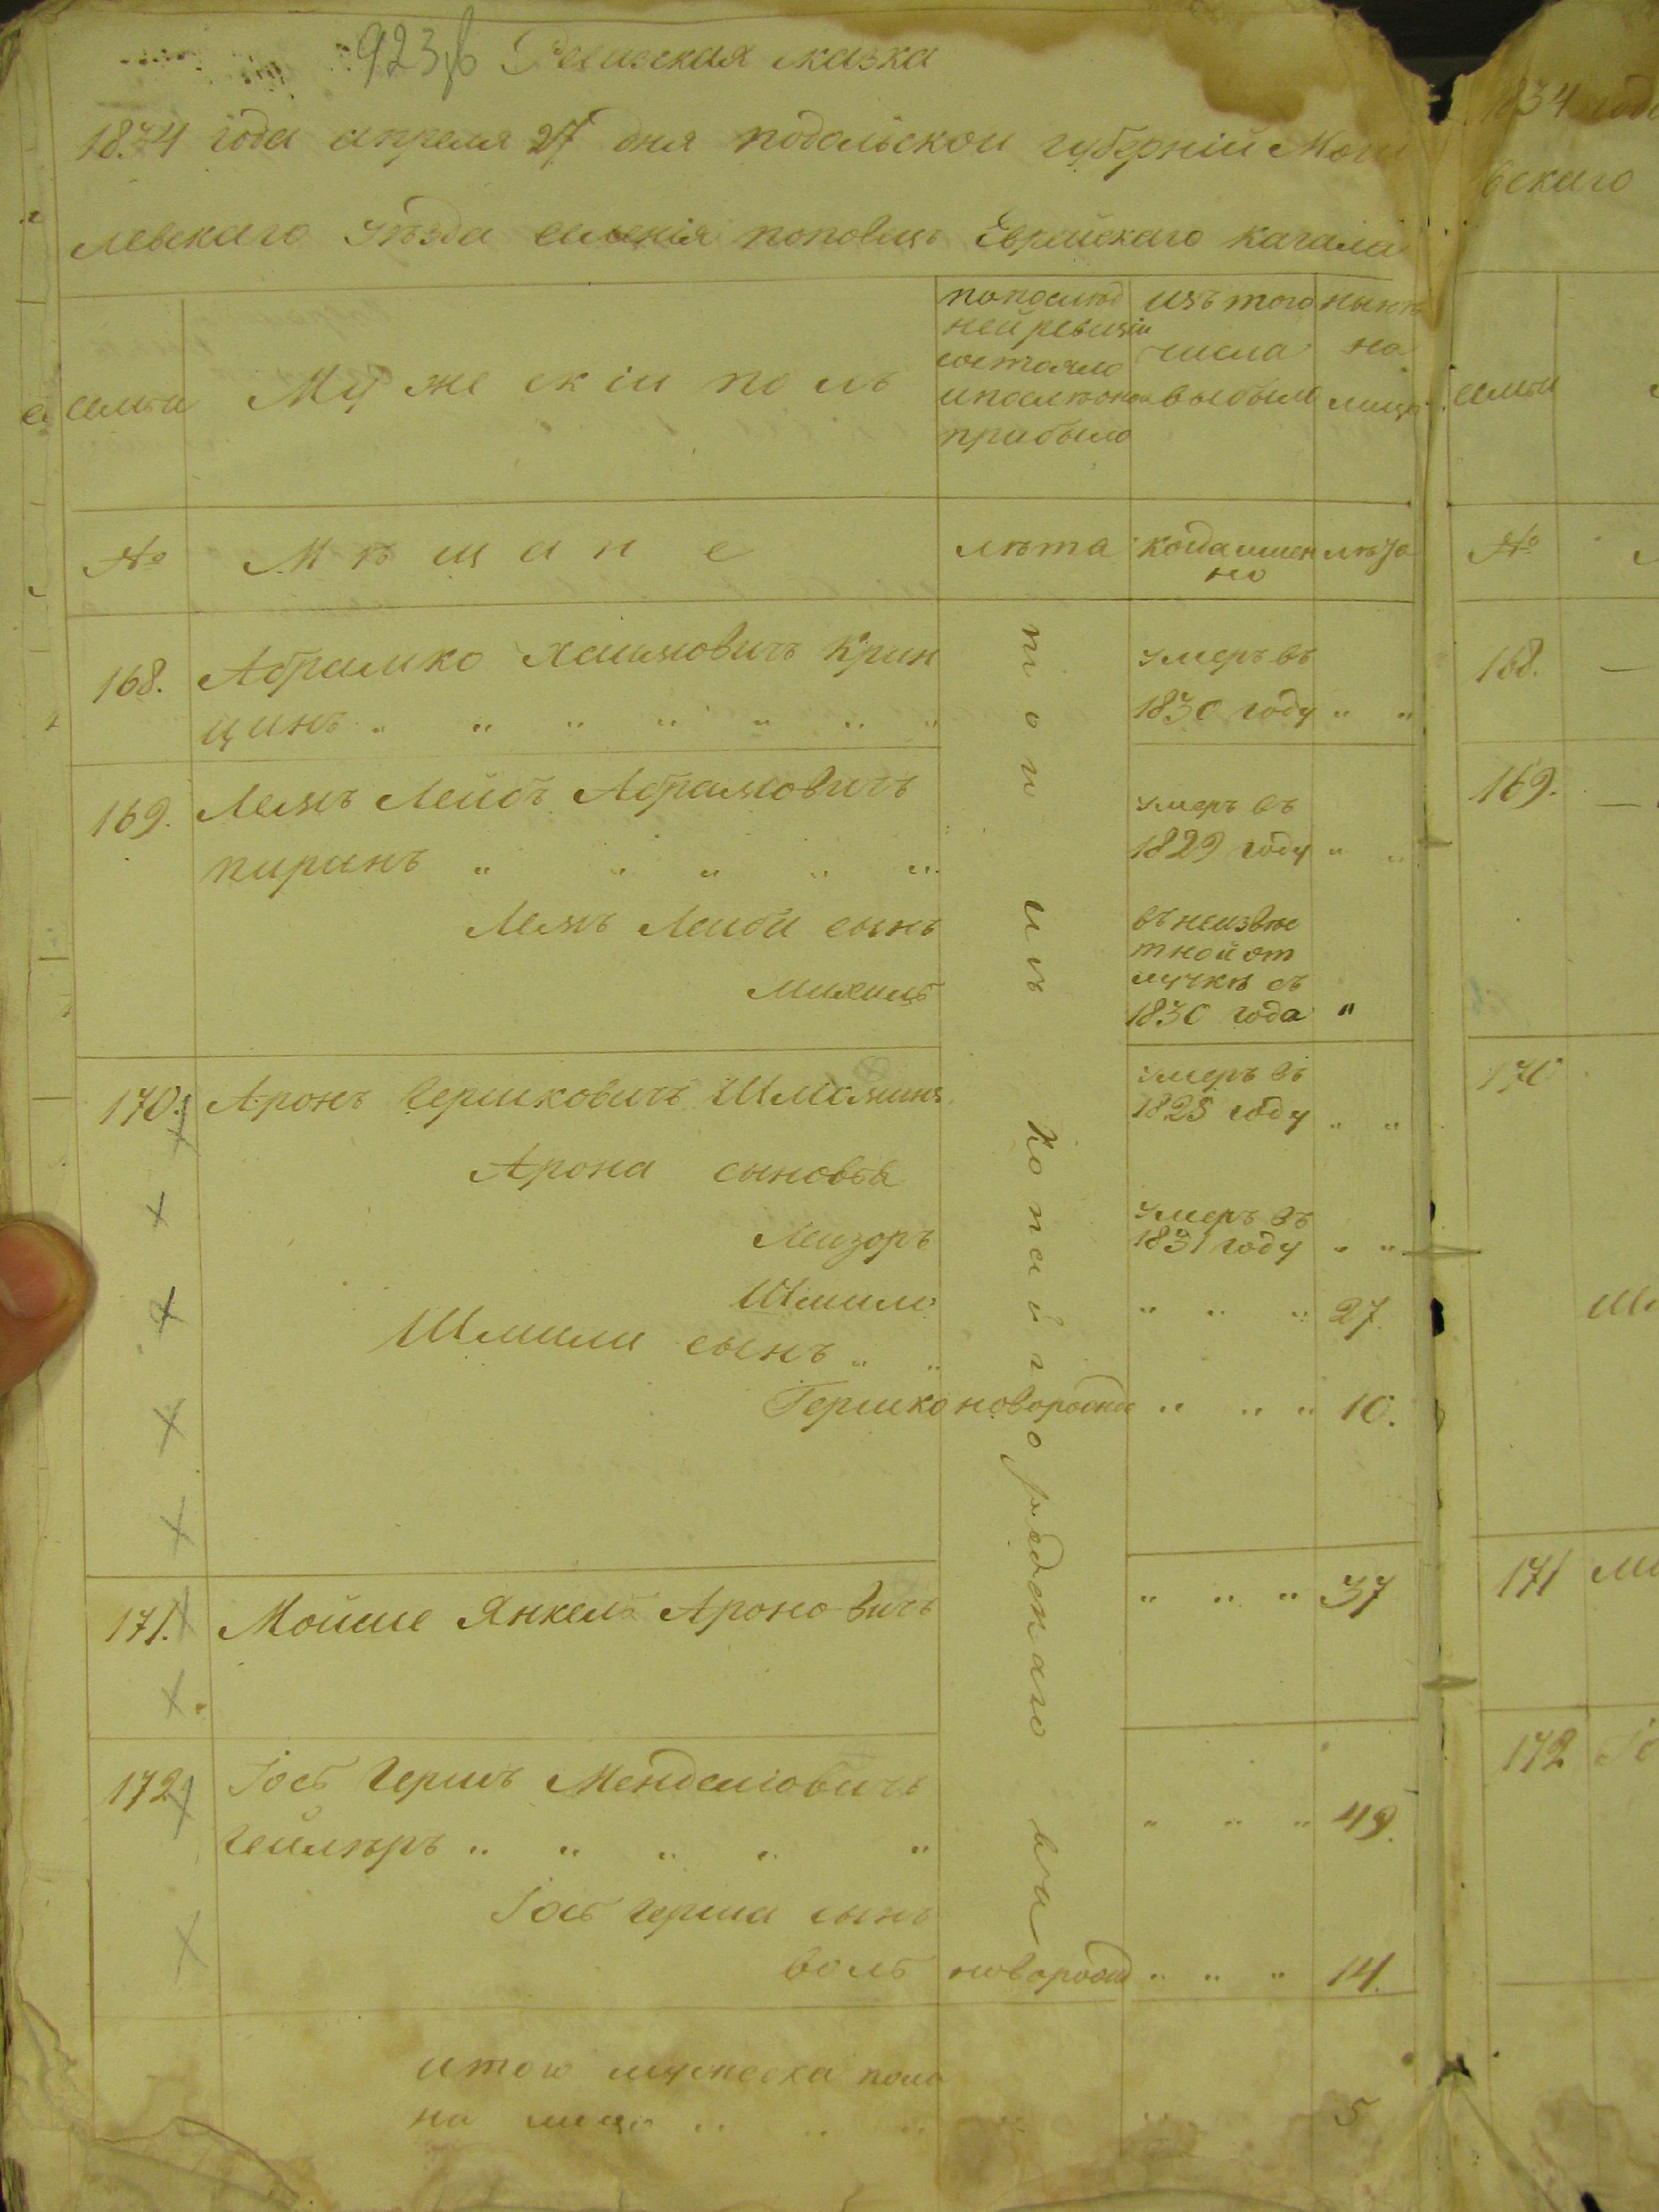 923 Ревизская сказка
1834 года апреля 27 дня подольской губерній Моги
левскаго уѣзда селенія поповецъ Еврейскаго кагала
семьи
Мужескій полъ
по послѣд
ней ревизіи
состояло
и после тоho
прибыло
изъ того
числа
выбыло
нынѣ
на
лицо
№
Мѣщане
лѣта
когда имен
но
лѣта
168.
Абрамко Хаимовичъ Крин
цинъ „ „ „ „ „ „ „
умеръ въ
1830 году „ „
169.
Лемъ Лейбъ Абрамовичъ
пиринъ „ „ „ „ „
умеръ въ
1829 году „ „
Лемъ Лейби сынъ
въ неизвѣс
тной от
лучкѣ съ
1830 года „
170.
Аронъ Гершковичъ
умеръ въ
1828 году „ „
Арона сыновья
Лейзоръ
умеръ въ
1831 году „ „
Шмило
„ „ „ 27.
Шмили сынъ „ „
Гершко новорожде „ „ „ 10.
171.
Мойше Янкель Ароновичъ
„ „ „ 37
172
Іось Гершъ Менделіовичъ
Гейлѣръ „ „ „ „ „
„ „ „ 49.
Іось Герша сынъ
воль новорожд „ „ „ 14.
копайгородскаго
итого мужеска пола
на лицо „ „ „ „ „ 5
1834 года
вскаго
семьи
№
168. —
169. —
170
171
172